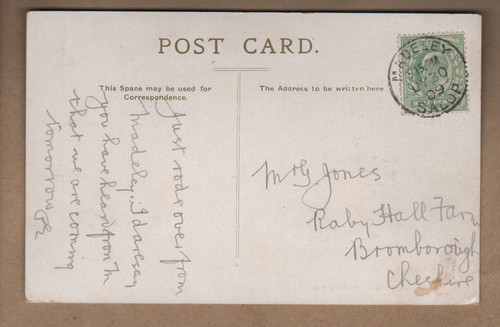 POST CARD.
This Space may be used for
Correspondence.
The Address to be written here
MADELEY
09
SALOP
Just rode over from
Madeley. I daresay
you have heard from M
that we are coming
tomorrow
Jones
Raby Hall Farm
Bromborough
Cheshire